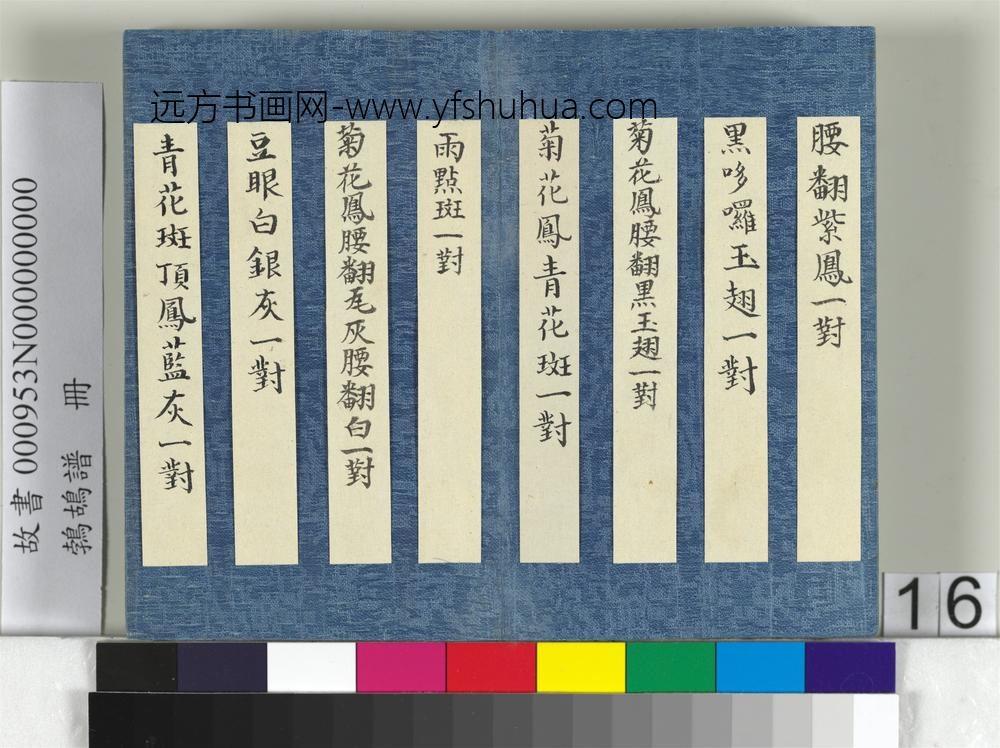 远方书画网-www.yfshuhua.com
腰翻紫鳳一對
黑哆囉玉翅一對
菊花鳳腰翻黑玉翅一對
菊花鳳青花斑一對
雨點斑一對
菊花鳳腰翻毛灰腰翻白一對
豆眼白銀灰一對
青花斑頂鳳藍灰一對
故書 000953N000000000
鵓鴣譜 冊
16